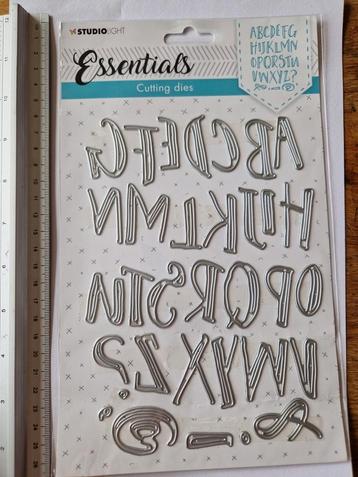 STUDIOLIGHT
Essentials
Cutting dies
ABCDEFG
HIJKLMN
OPQRSTU
VWXYZ?
ABCDEFG
HIJKLMN
OPQRSTU
VWXYZ?